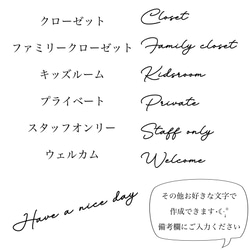 クローゼット Closet
ファミリークローゼット Family closet
キッズルーム Kidsroom
プライベート Private
スタッフオンリー Staff only
ウェルカム Welcome
Have a nice day
その他お好きな文字で
作成できます
備考欄にご入力ください